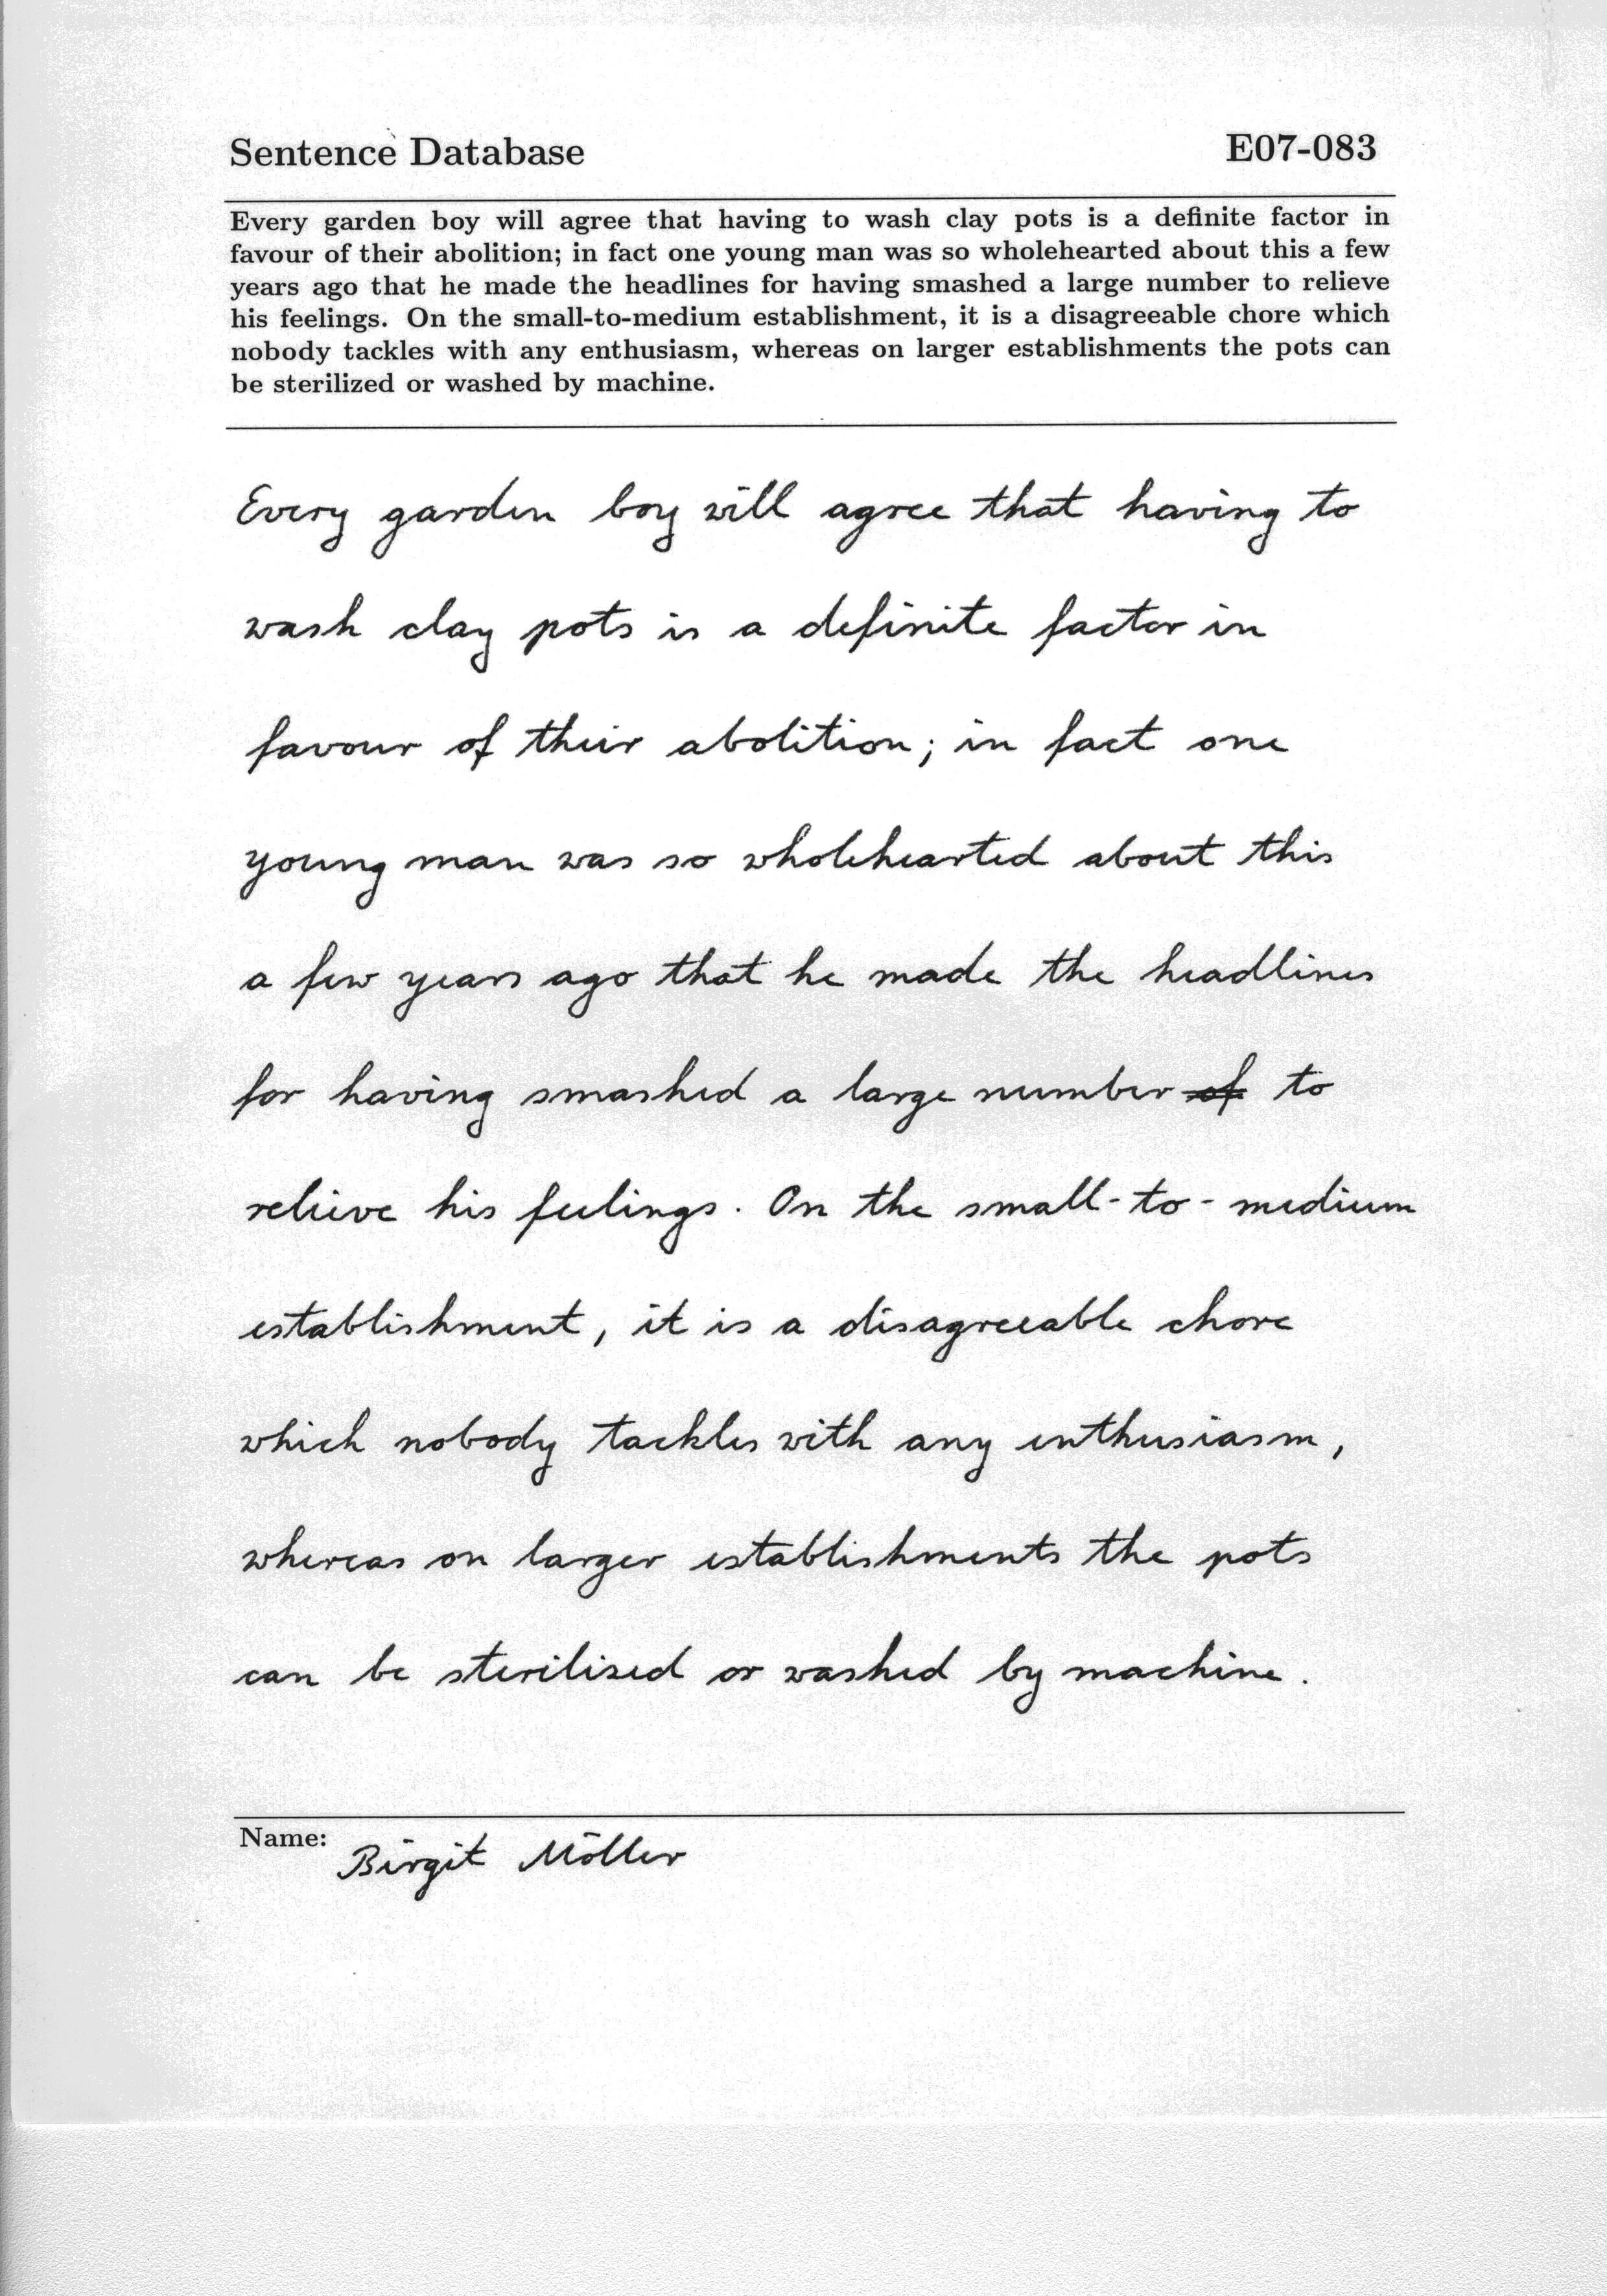 Sentence Database E07-083
Every garden boy will agree that having to wash clay pots is a definite factor in
favour of their abolition; in fact one young man was so wholehearted about this a few
years ago that he made the headlines for having smashed a large number to relieve
his feelings. On the small-to-medium establishment, it is a disagreeable chore which
nobody tackles with any enthusiasm, whereas on larger establishments the pots can
be sterilized or washed by machine.
Every garden boy will agree that having to
wash clay pots is a definite factor in
favour of their abolition; in fact one
young man was so wholehearted about this
a few years ago that he made the headlines
for having smashed a large number of to
relieve his feelings. On the small-to-medium
establishment, it is a disagreeable chore
which nobody tackles with any enthusiasm,
whereas on larger establishments the pots
can be sterilized or washed by machine.
Name: Birgit Möller